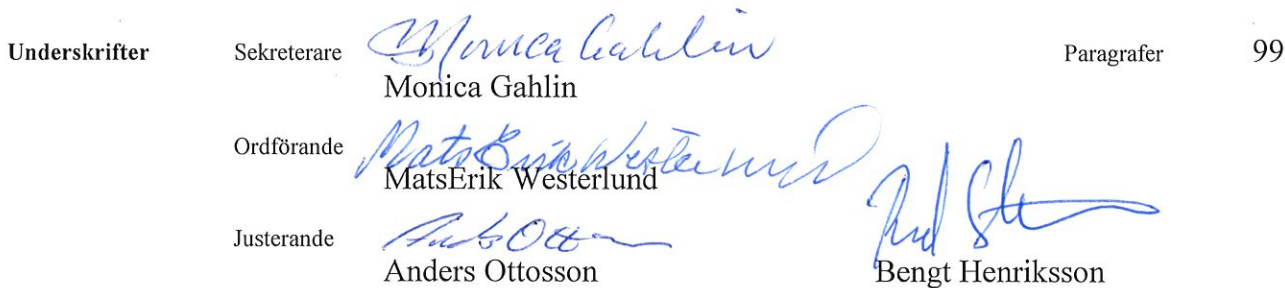 Underskrifter Sekreterare Monica Gahlin Paragrafer 99
Monica Gahlin
Ordförande MatsErik Westerlund
MatsErik Westerlund
Justerande Anders Otto
Anders Ottosson Bengt Henriksson